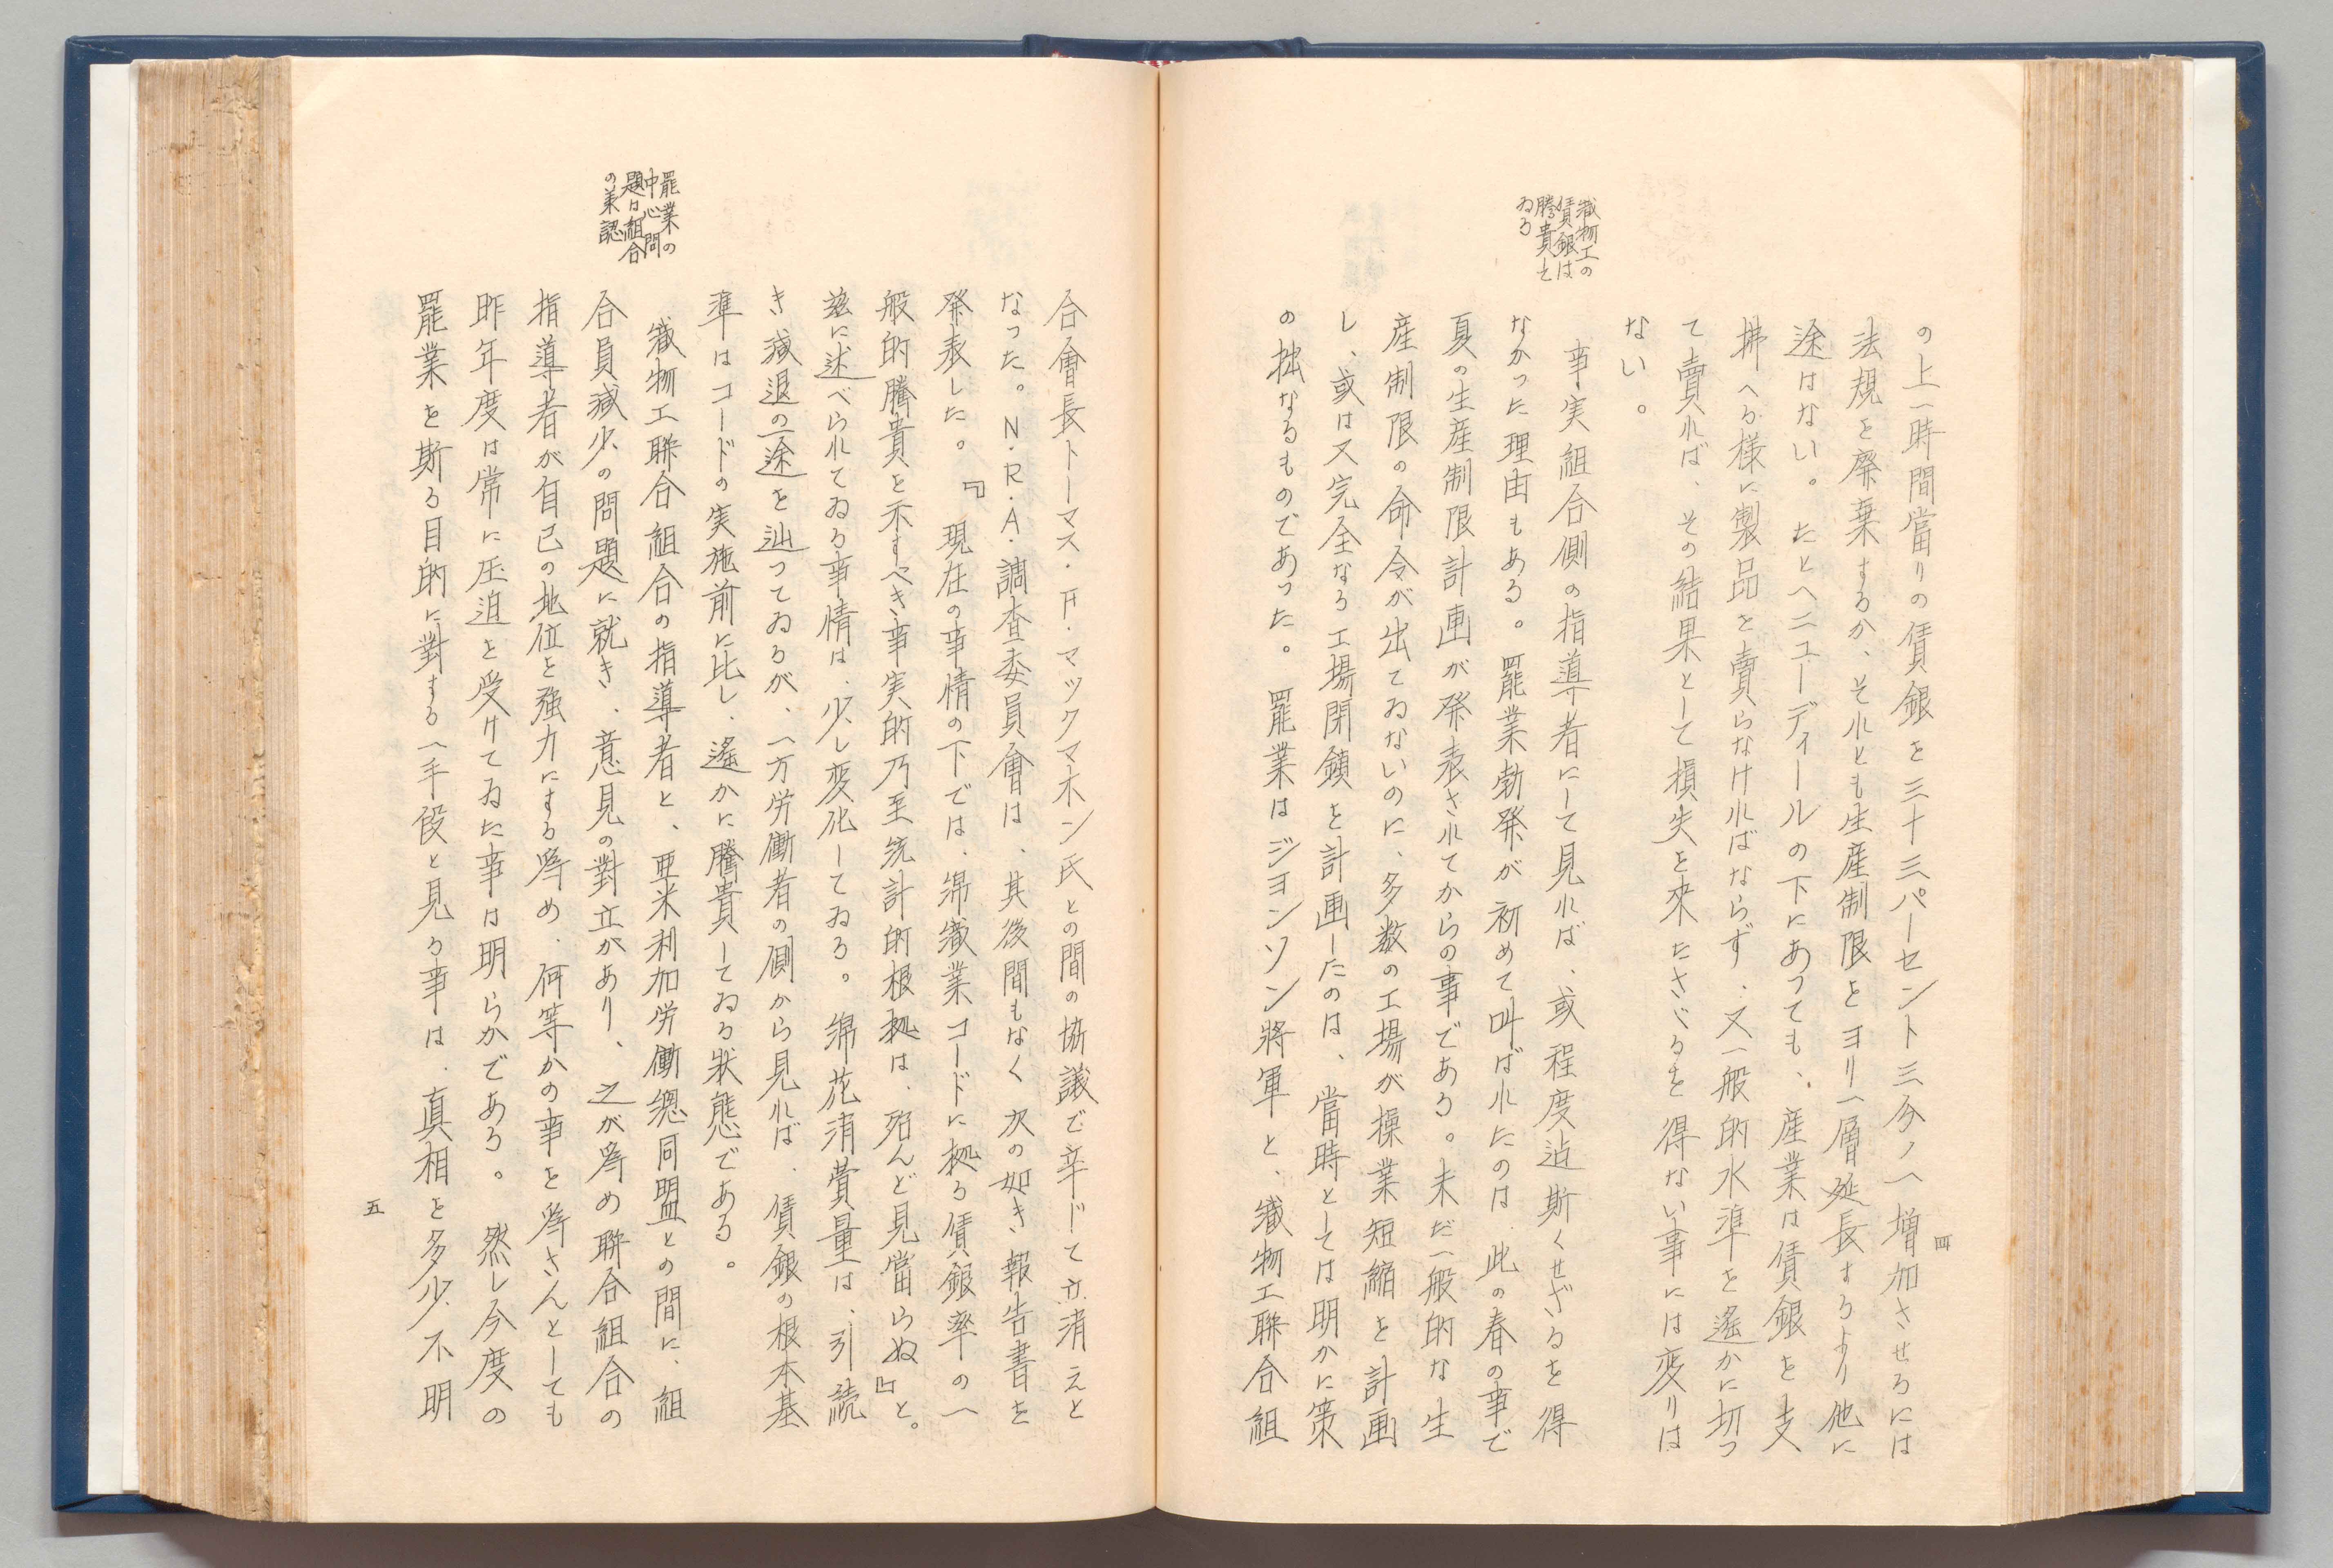 四
の上一時間當りの賃銀を三十三パーセント三分ノ一増加させるには
法規を廃棄するか、それとも生産制限をヨリ一層延長するより他に
途はない。たとへニューディールの下にあっても、産業は賃銀を支
拂へる様に製品を賣らなければならず、又一般的水準を遙かに切っ
て賣れば、その結果として損失を来たさゞるを得ない事には変りは
ない。
織物工の
賃銀は
騰貴して
ゐる
事実組合側の指導者にして見れば、或程度迠斯くせざるを得
なかった理由もある。罷業勃発が初めて叫ばれたのは、此の春の事で
夏の生産制限計画が発表されてからの事である。未だ一般的な生
産制限の命令が出てゐないのに、多数の工場が操業短縮を計画
し、或は又完全なる工場閉鎖を計画したのは、當時としては明かに策
の拙なるものであった。罷業はジョンソン将軍と、織物工聯合組
合會長トーマス・F・マックマホン氏との間の協議で辛じて立消えと
なった。N.R.A.調査委員會は、其後間もなく次の如き報告書を
発表した。『現在の事情の下では、綿織業コードに拠る賃銀率の一
般的騰貴を示すべき事実的乃至統計的根拠は、殆んど見當らぬ』と。
玆に述べられてゐる事情は、少し変化してゐる。綿花消費量は、引続
き減退の一途を辿ってゐるが、一方労働者の側から見れば、賃銀の根本基
準はコードの実施前に比し、遙かに騰貴してゐる状態である。
罷業の
中心問
題は組合
の承認
織物工聯合組合の指導者と、亜米利加労働總同盟との間に、組
合員減少の問題に就き、意見の對立があり、之が為め聯合組合の
指導者が自己の地位を強力にする為め、何等かの事を為さんとしても
昨年度は常に圧迫を受けてゐた事は明らかである。然し今度の
罷業を斯る目的に對する一手段と見る事は、真相を多少不明
五